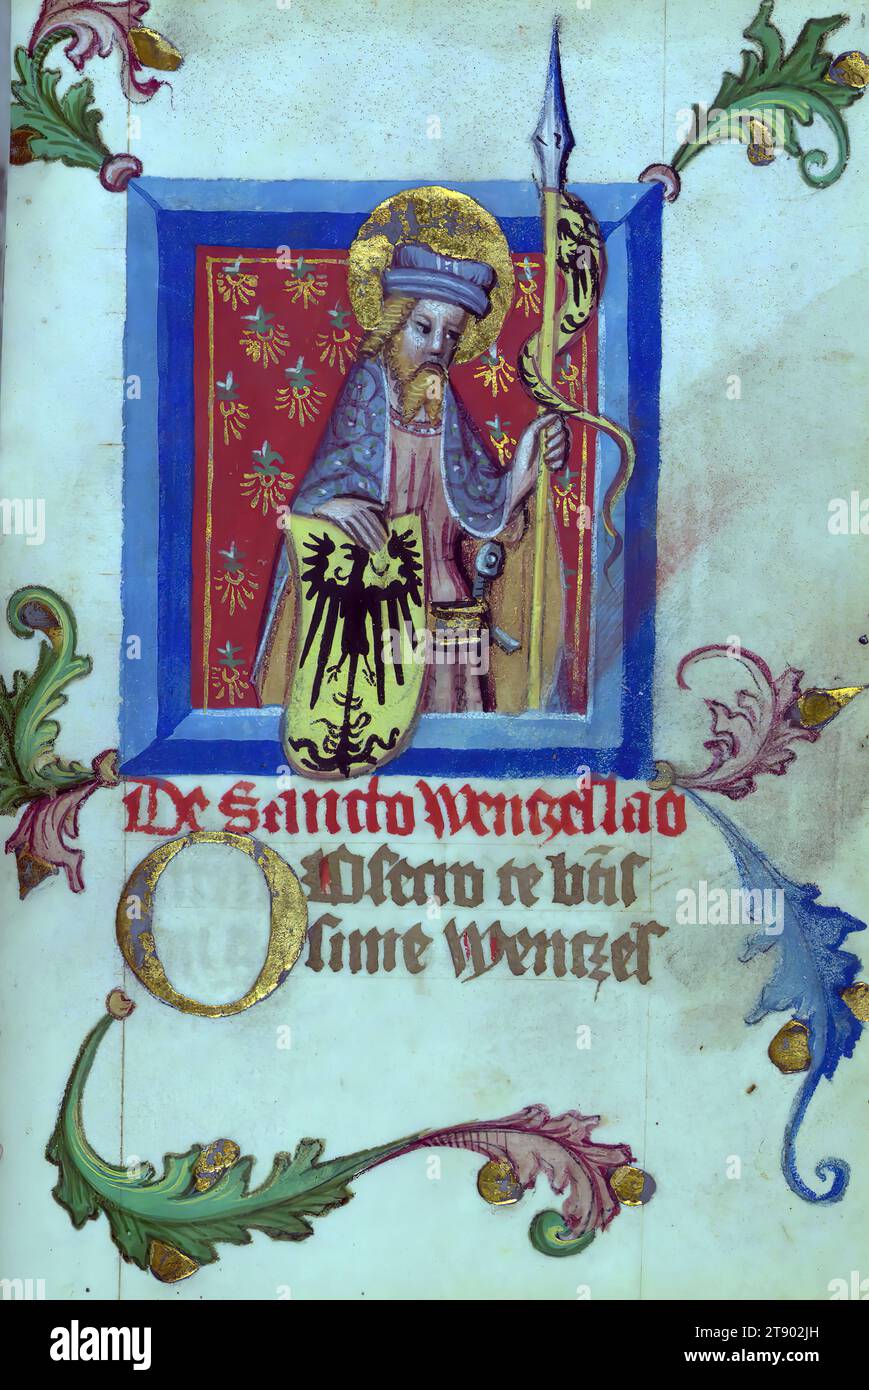 De Sancto Wentzellao
OBsecro te bt̄is
sime Wentzes
alamy
Image ID: 2T902JH
www.alamy.com